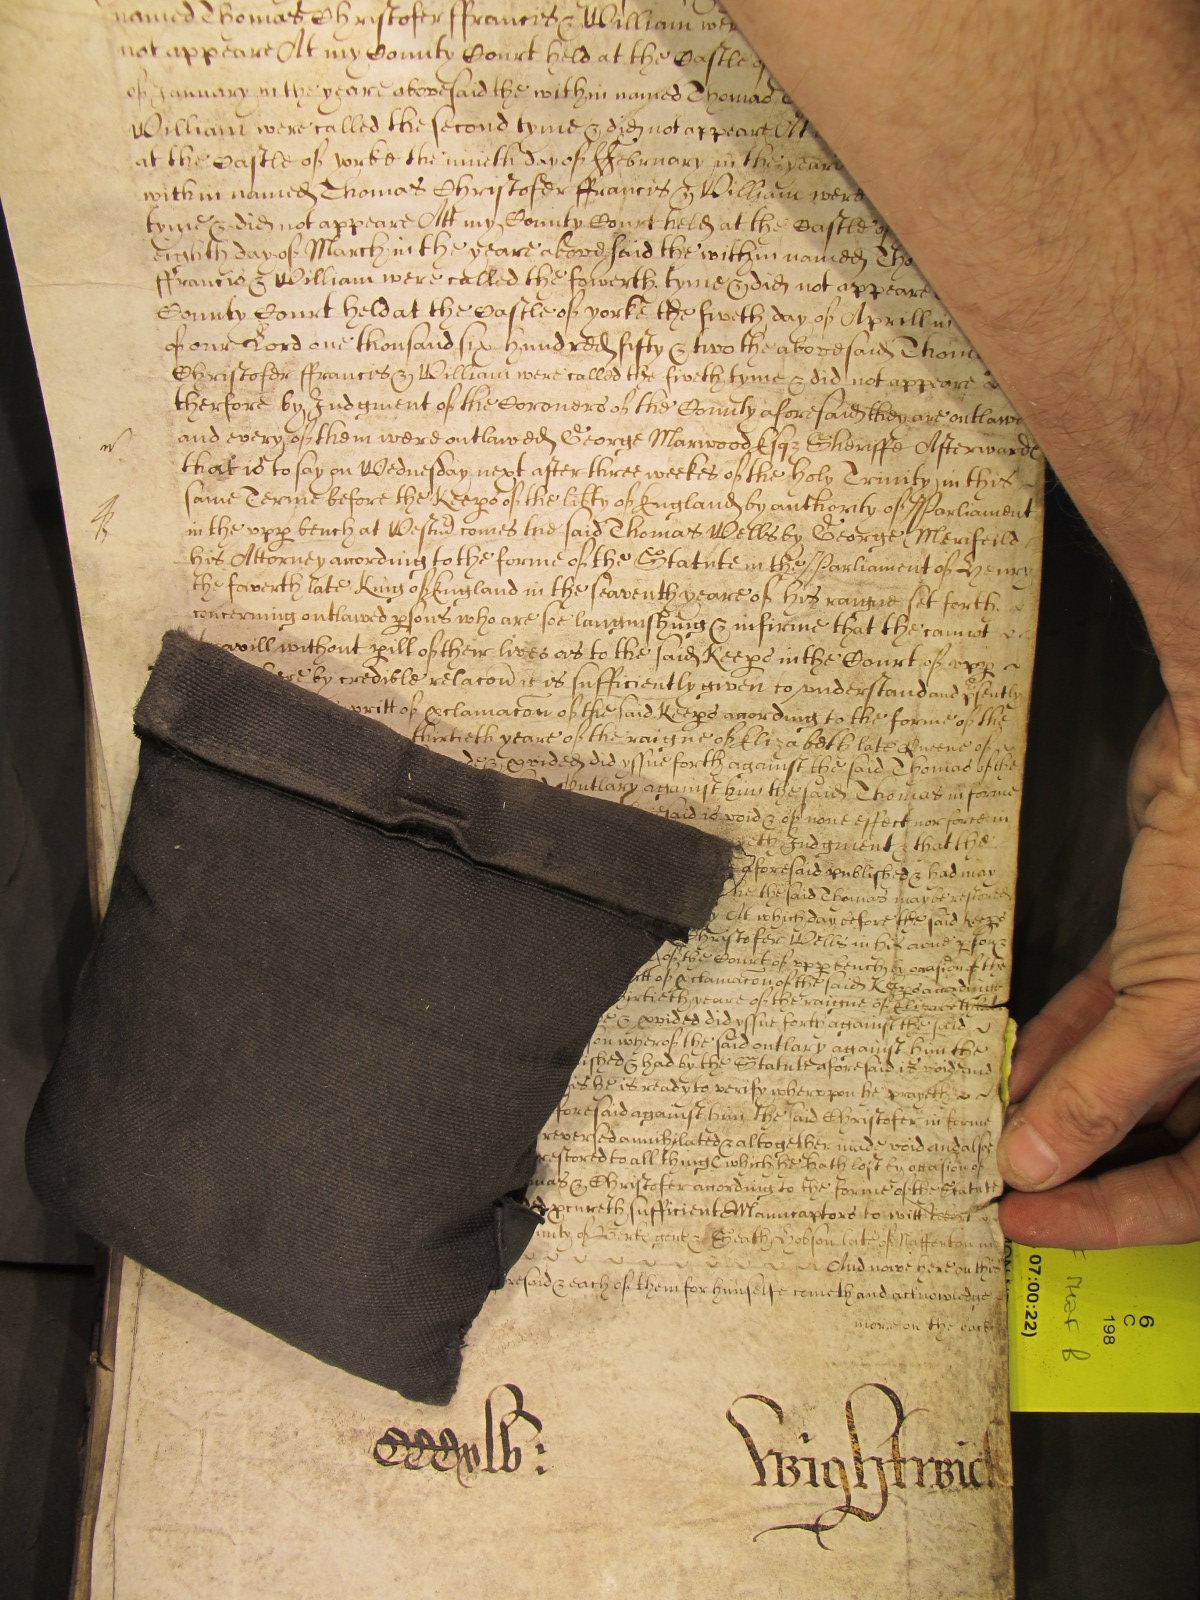 named Thomas Christofer ffrancis & William wer
not appeare At my County Court held at the Castle of
of January in the yeare abovesaid the within named Thomas
William were called the second tyme & did not appeare At
at the Castle of yorke the nineth day of ffebruary in the yeare
within named Thomas Christofer ffrancis & William were
tyme & did not appeare Att my County Court held at the Castle of
eighth day of March in the yeare abovesaid the within named Tho
ffrancis & William were called the fowerth tyme & did not appeare
County Court held at the Castle of yorke the fiveth day of Aprill in
of our Lord one thousand six hundred fifty & two the abovesaid Thom
Christofer ffrancis & William were called the fiveth tyme & did not appeare
therfore by Judgment of the Coroners of the County aforesaid they are outlawe
and every of them were outlawed George Marwood Esqz Sheriffe Afterwards
that is to say on Wednesday next after three weekes of the holy Trinity in this
same Terme before the Keeps of the libty of England by authority of Parliament
in the upp bench at Westm comes the said Thomas Wells by George Merifeild
his Attorney acording to the forme of the Statute in the Parliament of Henry
the fowerth late King of England in the seaventh yeare of his raigne set forth
concerning outlawed psons who are soe languishing & infirme that the cannot
will without pill of their lives as to the said Keeps in the Court of upp
by credible relacon it is sufficiently given to understand and psently
writt of pclamacon of the said Keeps acording to the forme of the
thirtieth yeare of the raigne of Elizabeth late Queene of
& pvided did yssue forth against the said Thomas of the
outlary against him the said Thomas in forme
said is void & of none effect nor force in
Judgment & that the
aforesaid published & had may
the said Thomas may be restored
At which day before the said Keeps
Christofer Wells in his owne pson
of the Court of upp bench by ocasion of the
of pclamacon of the said Keeps acordinge
thirtieth yeare of the raigne of Elizabeth lat
& pvided did yssue forth against the said
wherof the said outlary against him the
& had by the Statute aforesaid is void and
he is ready to verify wherupon he prayeth
foresaid against him the said Christofer in forme
reversed annihilated & altogether made void and alsoe
restored to all things which he hath lost by ocasion of
mas & Christofer acording to the forme of the Statute
sufficient Manucaptors to witt
of yorke gent & Heath Hobson late of Nafferton in
And nowe here on this
resaid & each of them for himselfe cometh and acknowledge
more on the back
CCCxxlb:
Wightwick
07:00:22)
6
C
198